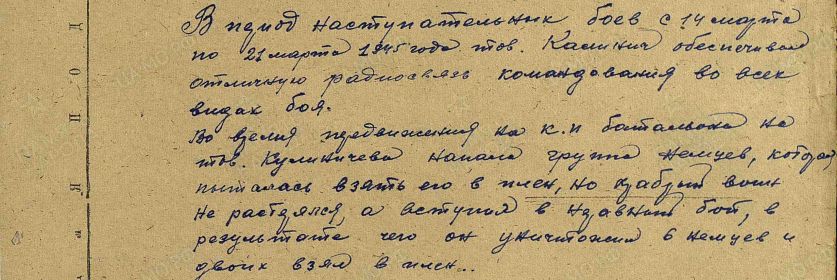 В период наступательник боев с 14 марта
по 21 марта 1945 года тов. обеспечивал
отличную радиосвязь командования во всех
видах боя.
Во время предвижения на к.п батальона на
тов. Кулиничева напала группа немцев, которая
пыталась взять его в плен, но храбрый воин
не растерялся, а вступил в неравный бой, в
результате чего он уничтожил 6 немцев и
двоих взял в плен..
Я П О Д